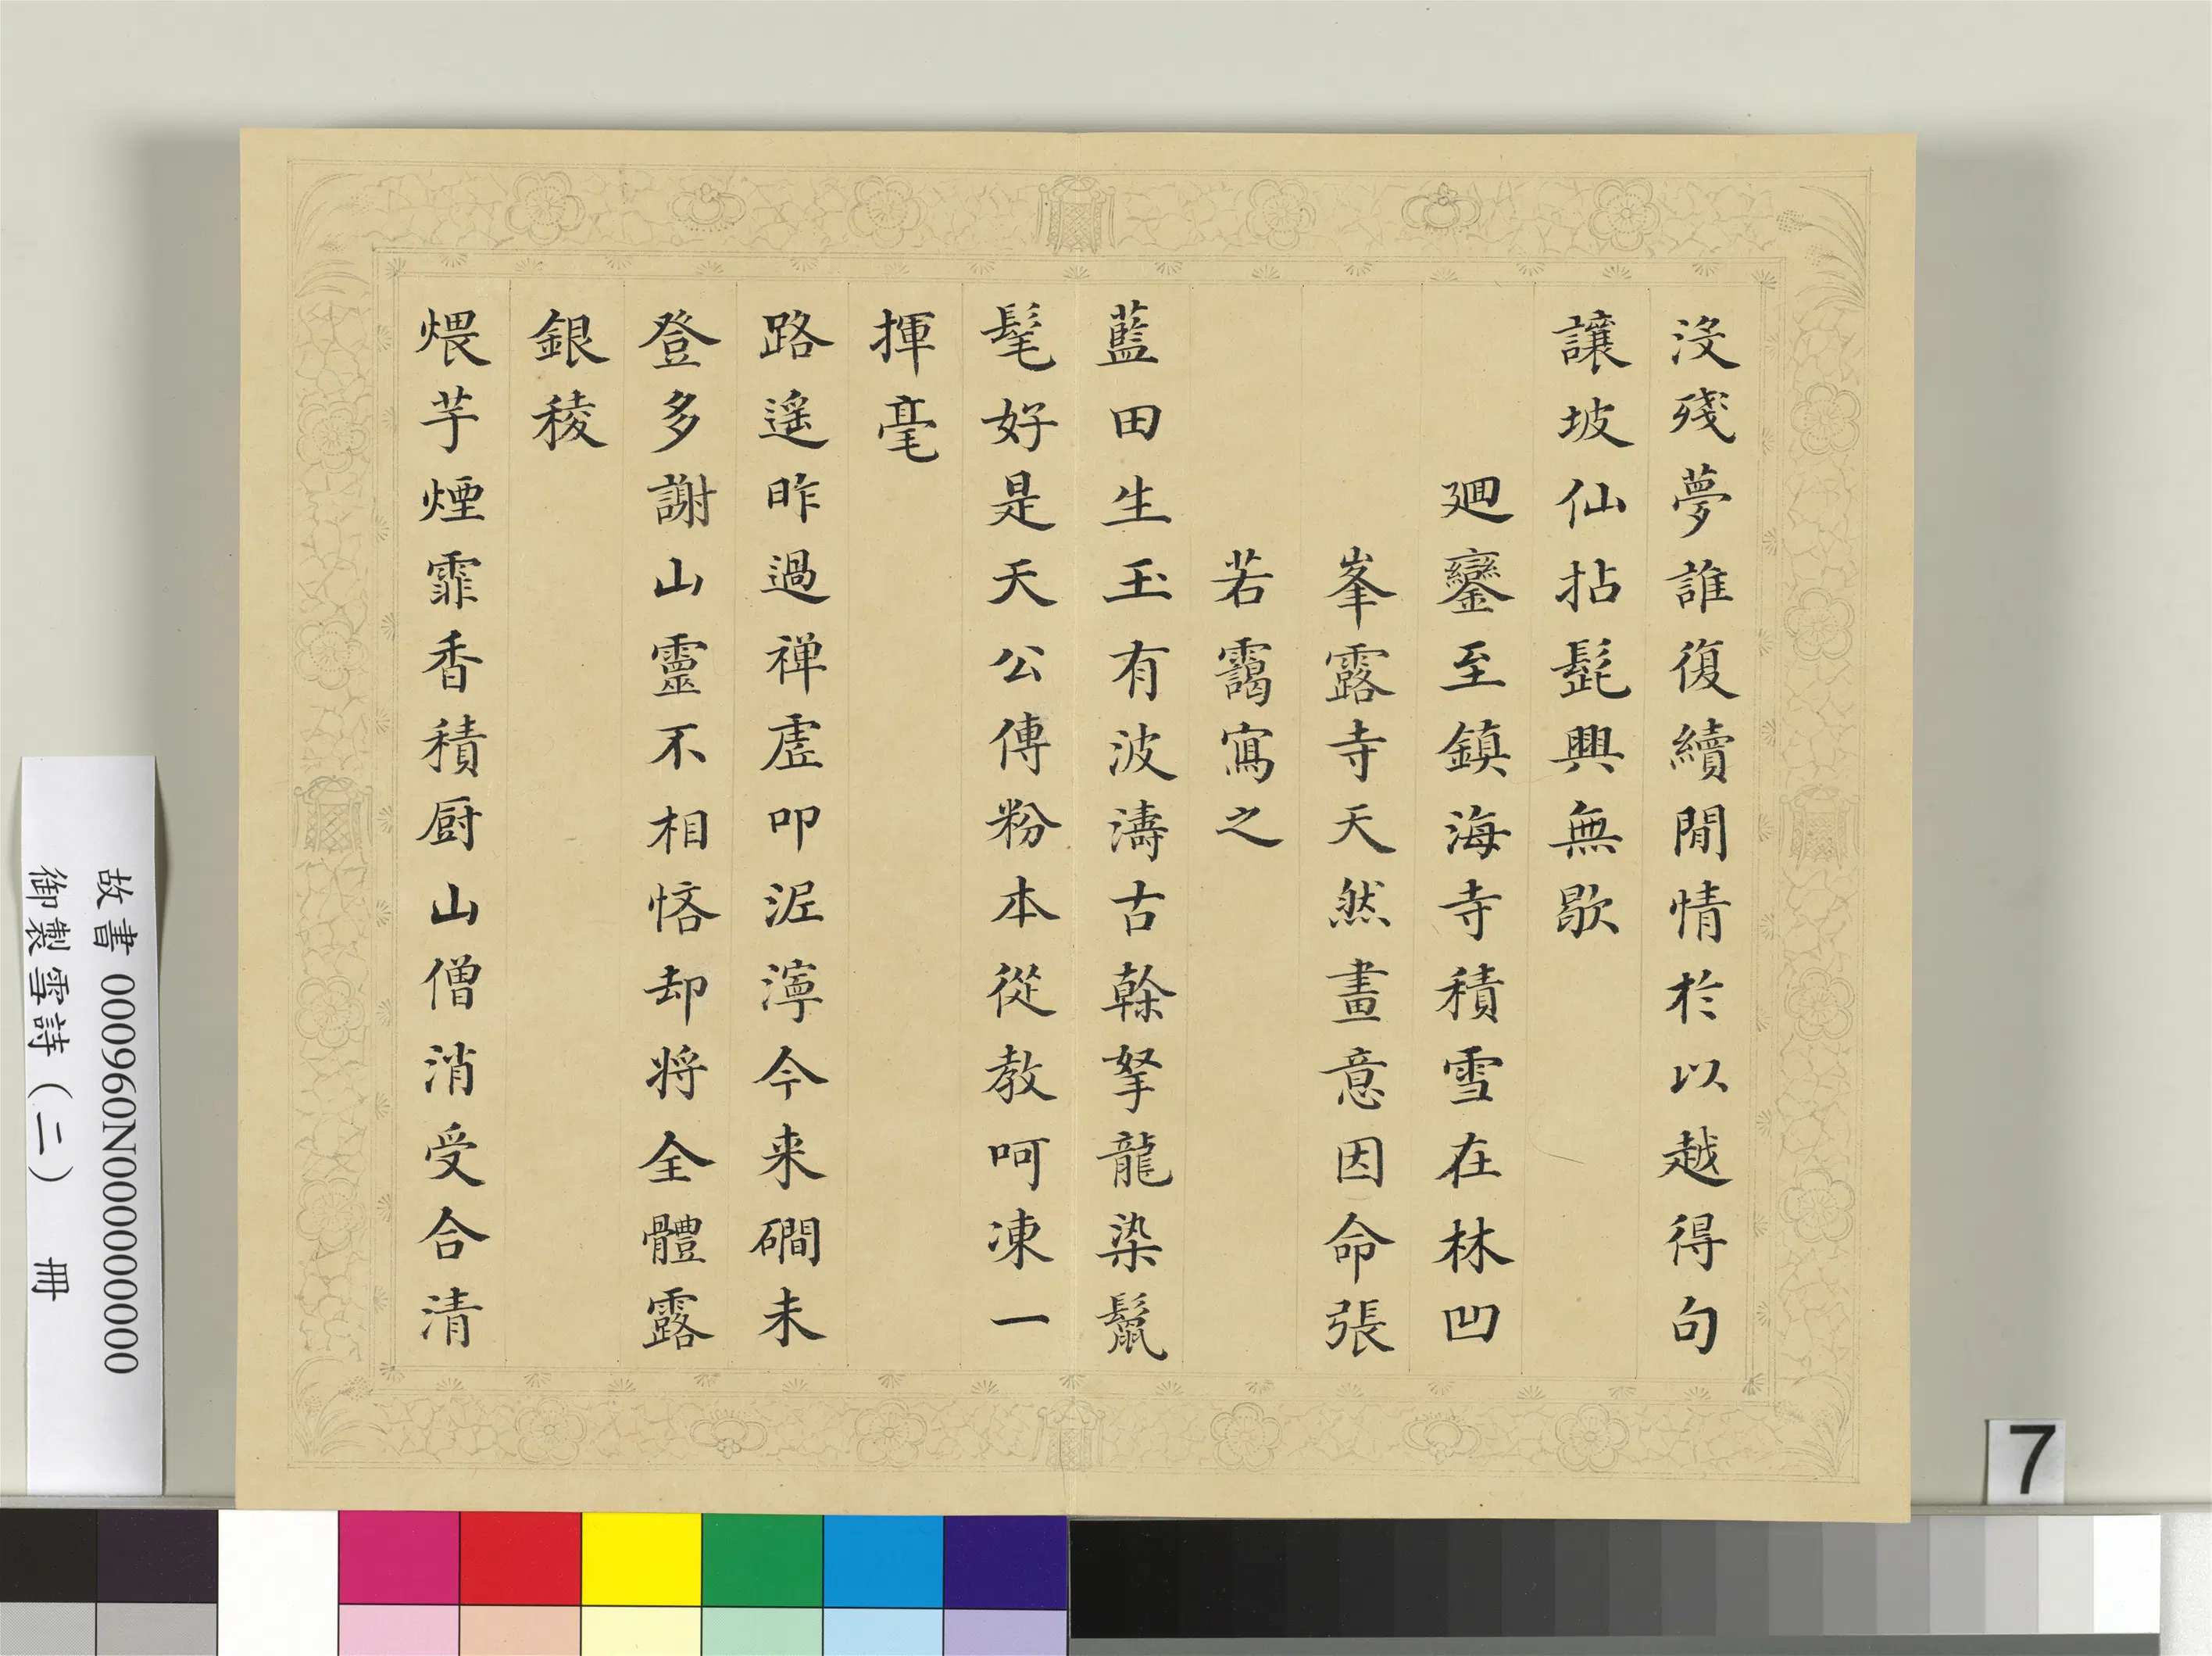 沒殘夢誰復續閒情於以越得句
讓坡仙拈髭興無歇
廻鑾至鎮海寺積雪在林凹
峯露寺天然畫意因命張
若靄寫之
藍田生玉有波濤古榦拏龍染鬣
髦好是天公傳粉本從教呵凍一
揮毫
路遙昨過禅虛叩泥濘今来磵未
登多謝山靈不相悋却将全體露
銀稜
煨芋煙霏香積厨山僧消受合清
故書 000960N000000000
御製雪詩（二） 冊
7